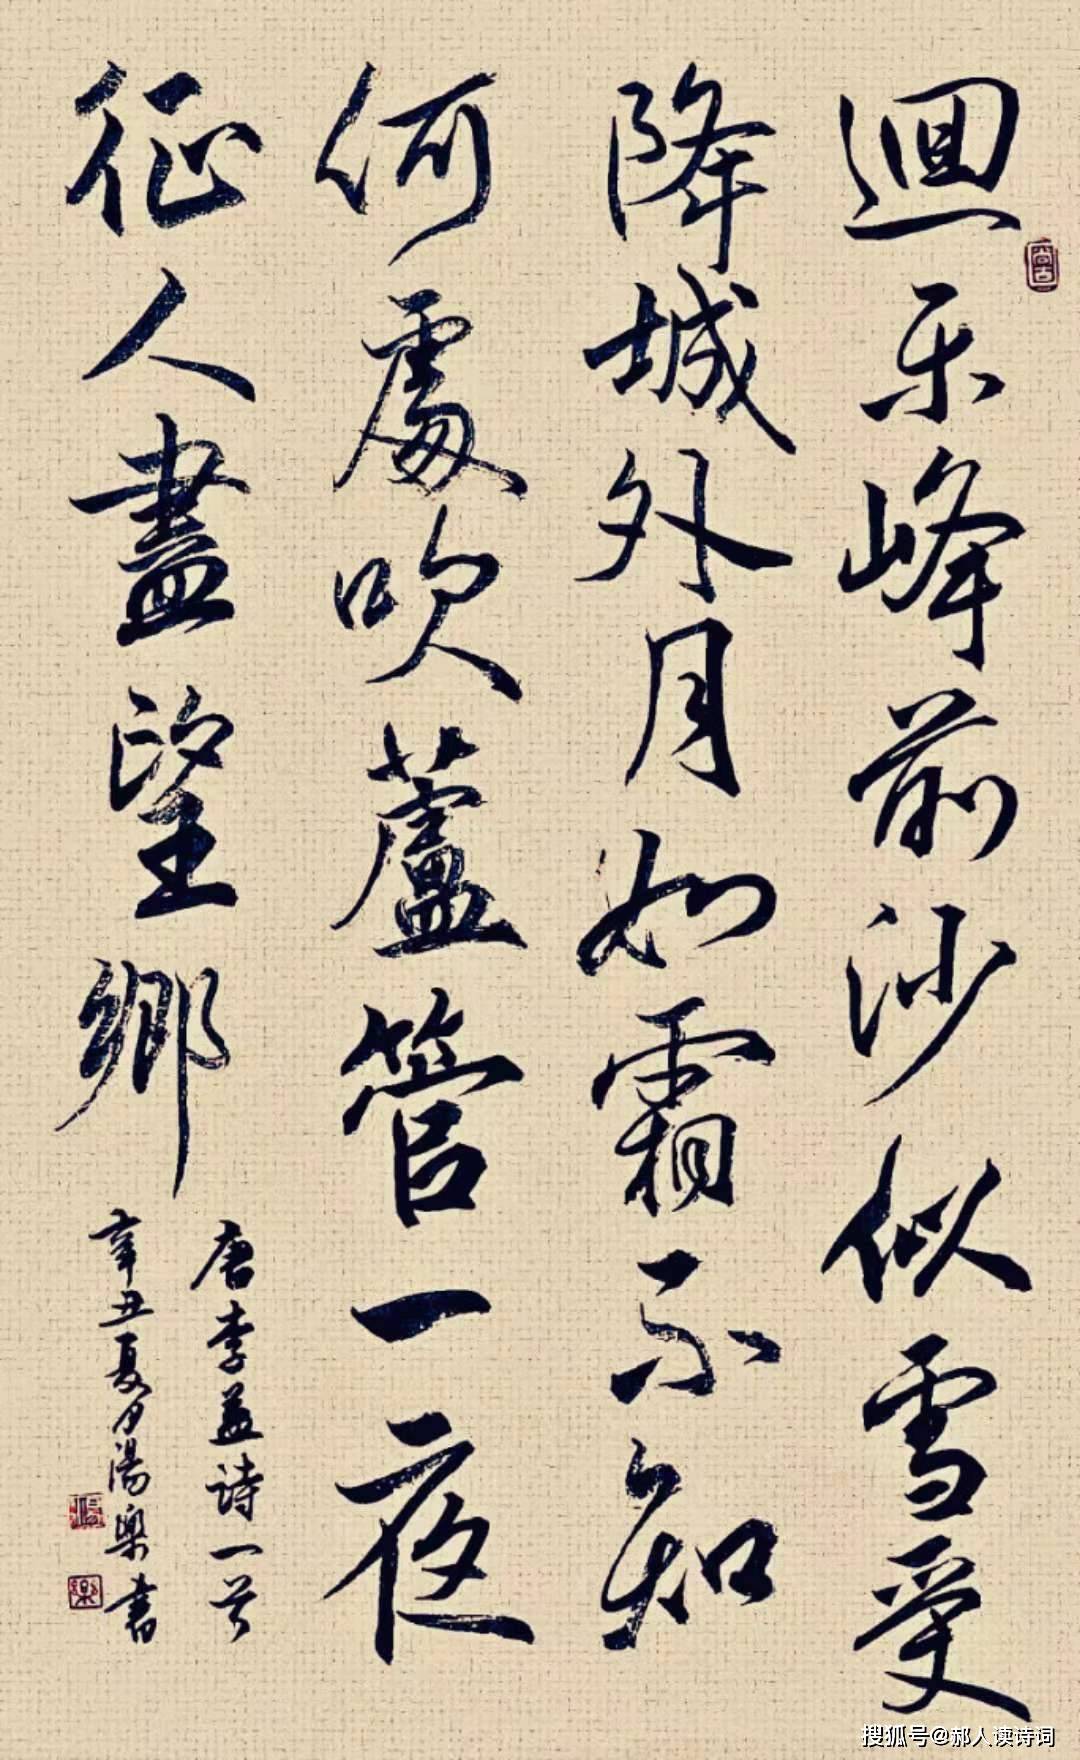 迴乐峰前沙似雪受
降城外月如霜不知
何處吹蘆管一夜
征人盡望鄉
唐李益詩一首
辛丑夏月湯樂書
尚古
搜狐号@郝人读诗词